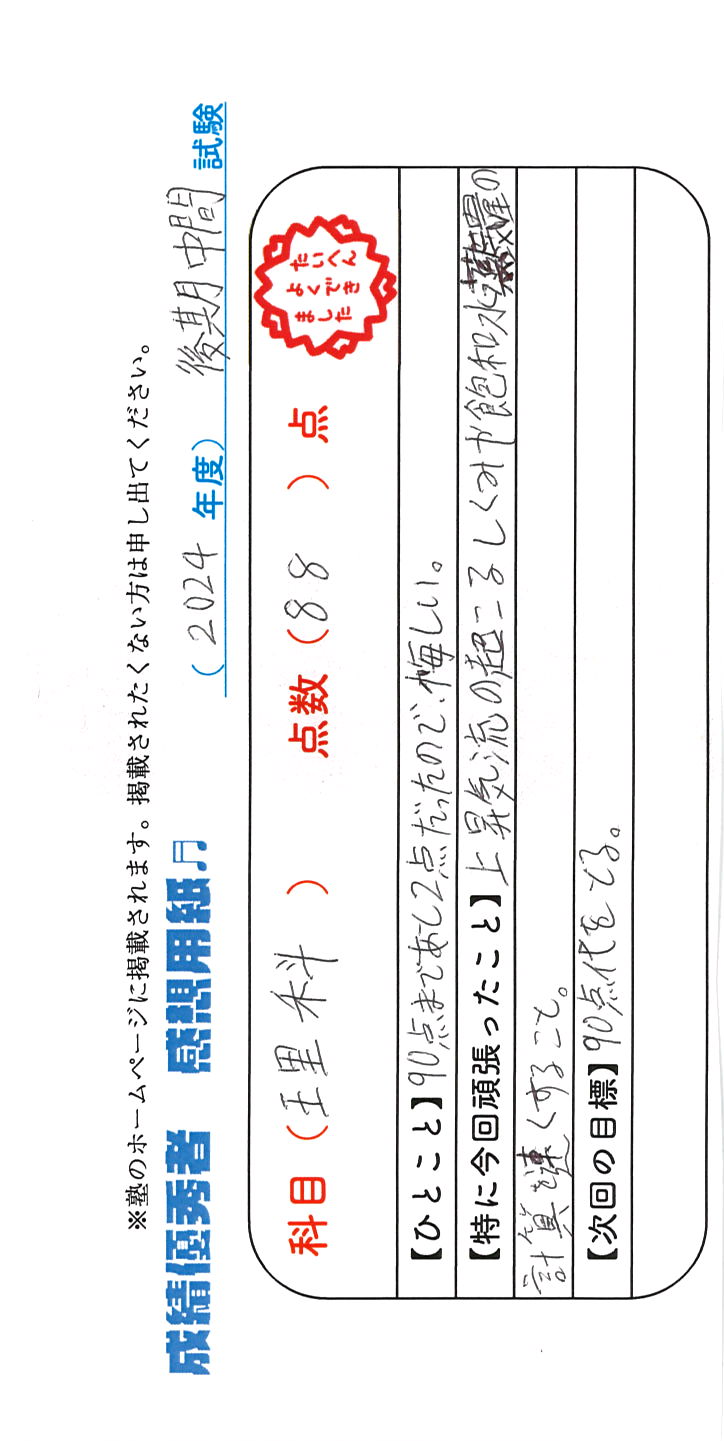 ※塾のホームページに掲載されます。掲載されたくない方は申し出てください。
成績優秀者 感想用紙♬ (2024年度) 後期中間 試験
科目(理科) 点数(88)点
たいへん
よくでき
ました
【ひとこと】90点まであと2点だったので、悔しい。
【特に今回頑張ったこと】上昇気流の起こるしくみや飽和水蒸気量の
計算を速くすること。
【次回の目標】90点代をとる。